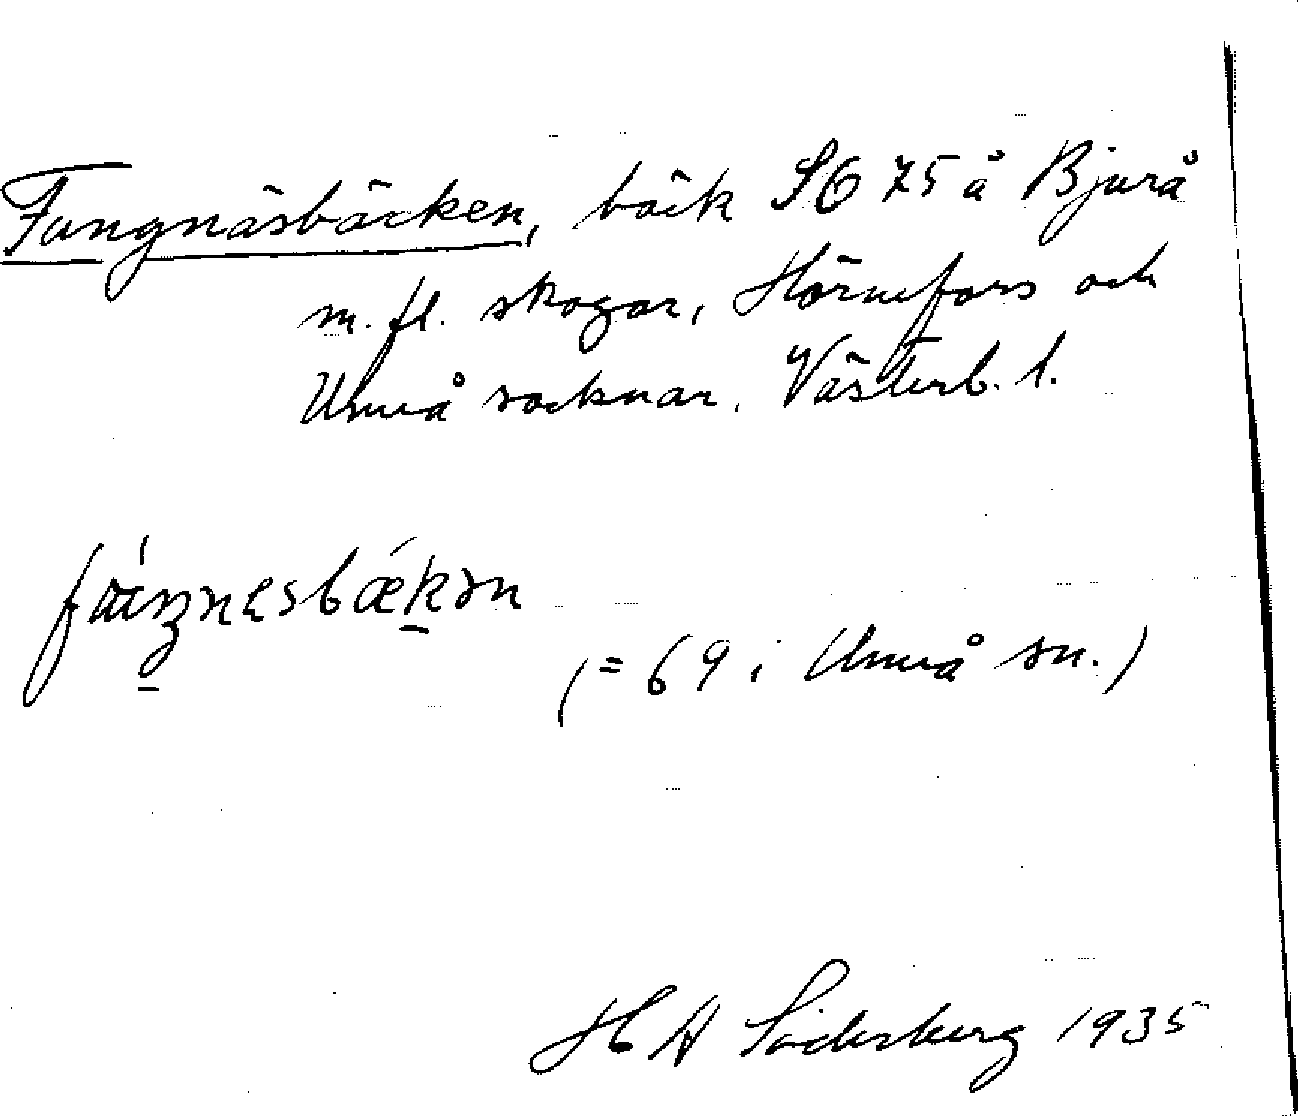 Fangnäsbäcken, bäck S6 75 å Bjurå
m. fl. skogar, Hörnefors och
Umeå socknar. Västerb. l.
fáŋnesbǽkən
(= 69 i Umeå sn.)
H A Söderberg 1935